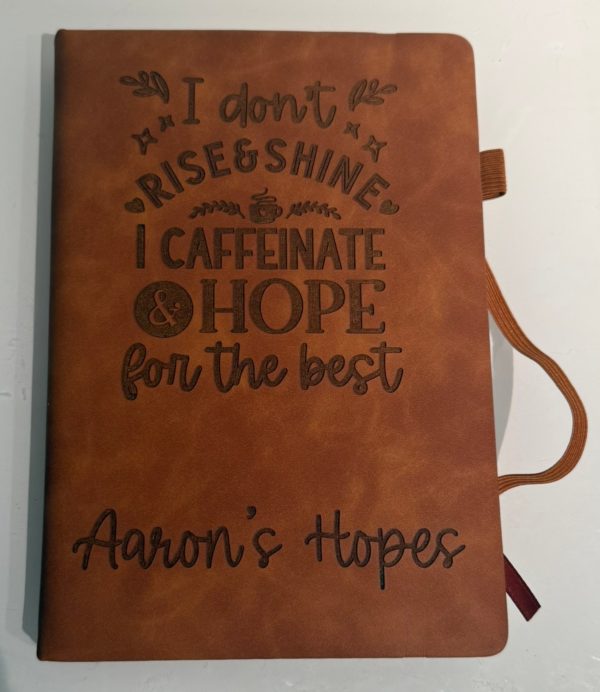 I don't
RISE & SHINE
I CAFFEINATE
& HOPE
for the best
Aaron's Hopes